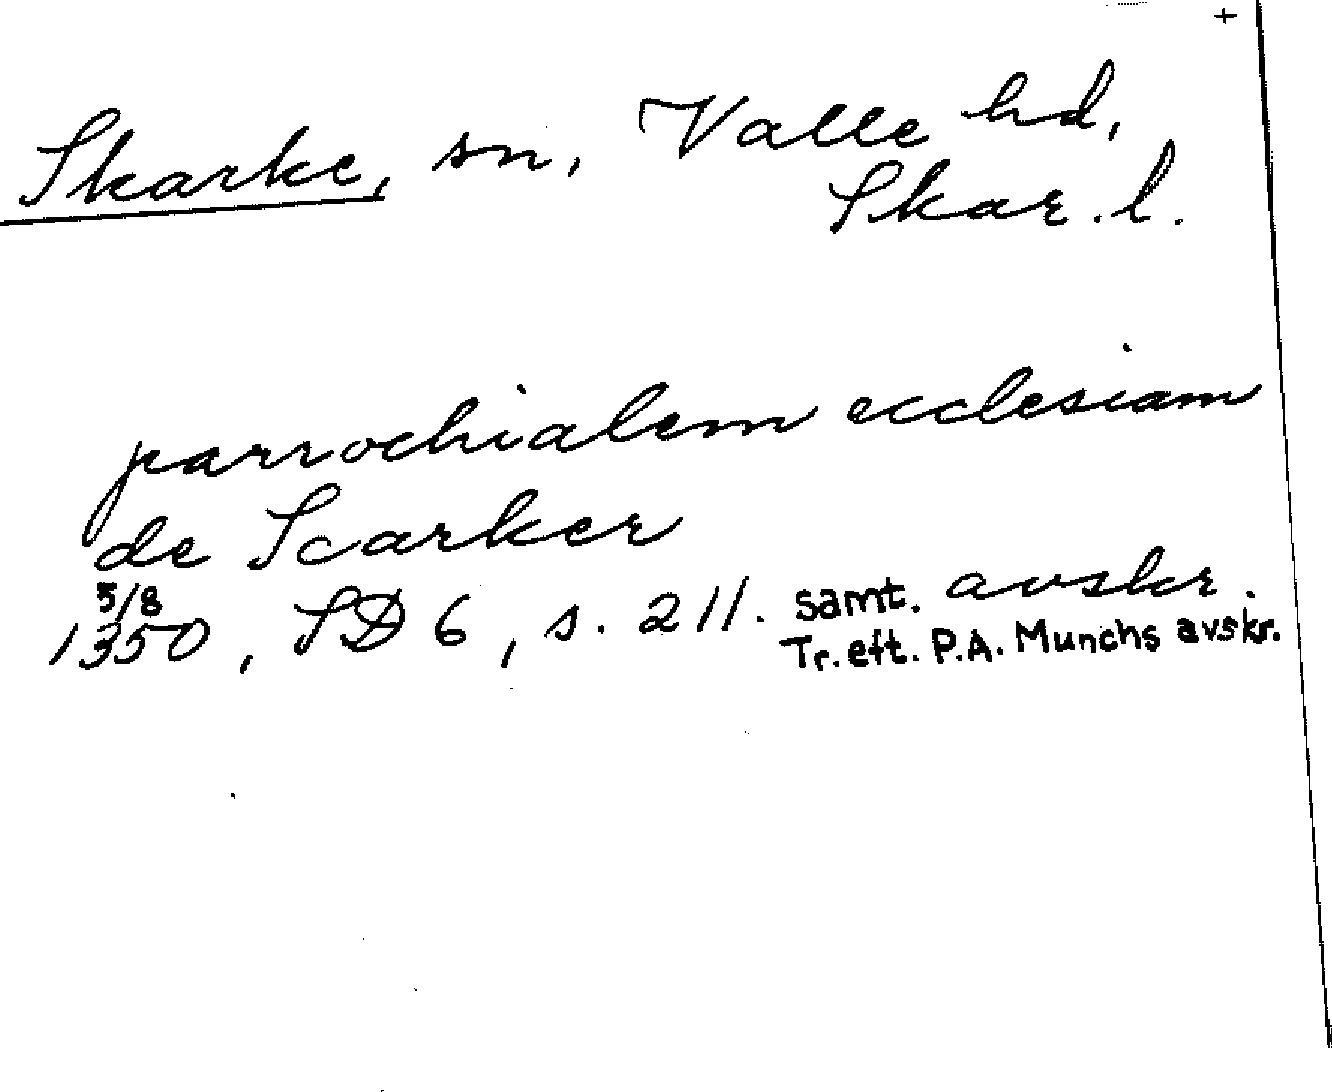 +
Skarke, sn, Valle hd,
Skar. l.
parrochialem ecclesiam
de Scarker
5/8
1350, SD 6, s. 211. samt. avskr.
Tr. eft. P.A. Munchs avskr.